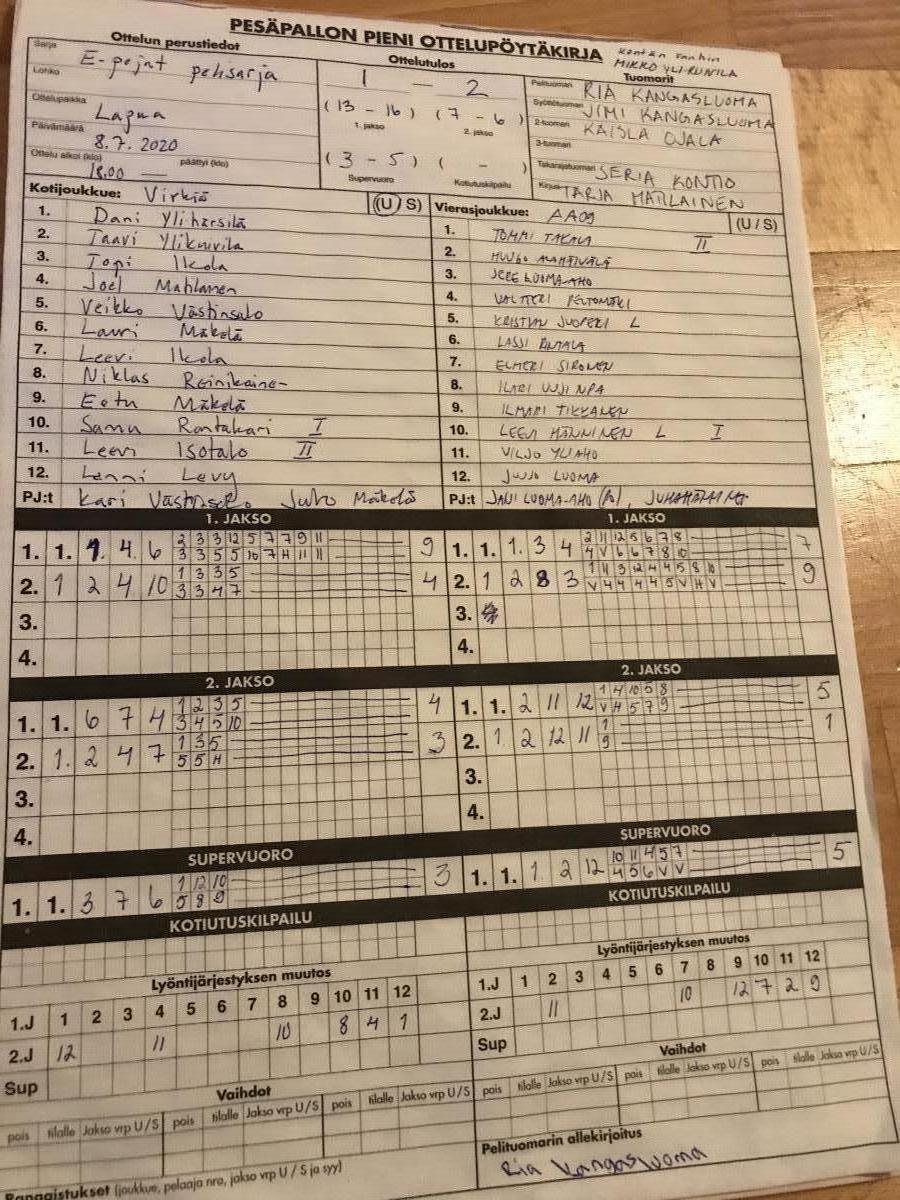 PESÄPALLON PIENI OTTELUPÖYTÄKIRJA
MIKKO YLI-RUNILA
Ottelun perustiedot
Ottelutulos
Tuomarit
Sarja E-pojat pelisarja
Lohko
Ottelupaikka Lapua
Päivämäärä 8.7.2020
Ottelu alkoi (klo) 18.00 päättyi (klo) —
1 — 2
(13 - 16) (7 - 6)
1. jakso 2. jakso
(3 - 5) ( - )
Supervuoro Kotiutuskilpailu
Pelituomari RIA KANGASLUOMA
Syöttötuomari JIMI KANGASLUOMA
2-tuomari KAISLA OJALA
3-tuomari
Takarajatuomari SERIA KONTIO
Kirjuri TARJA MATILAINEN
Kotijoukkue: Virkiä (U / S)
1. Dani Yliharsilä
2. Taavi
3. Topi Ikola
4. Joel
5. Veikko Västinsalo
6. Lauri Mäkelä
7. Leevi Ikola
8. Niklas
9. Eetu Mäkelä
10. Samu Rantakari I
11. Leevi Isotalo II
12. Lenni Levy
PJ:t Kari Västinsalo Juho Mäkelä
Vierasjoukkue: AA09 (U / S)
1. TOMMI TAKALA II
2. HUUGO ALAHÄIVÄLÄ
3. JERE LUOMA-AHO
4. VALTTERI PELTOMÄKI
5. KRISTIAN JUOPERI L
6. LASSI
7. ELMERI SIRONEN
8. ILARI
9. ILMARI TIKKANEN
10. LEEVI MÄNNINEN L I
11. VILJO YLIAHO
12. JUUSO LUOMA
PJ:t JANI LUOMA-AHO
1. JAKSO
1. 1. 1. 4. 6 9
2 3 3 12 5 7 7 9 11
3 3 5 5 10 7 H 11 11
2. 1 2 4 10 4
1 3 3 5
3 3 4 7
3.
4.
1. JAKSO
1. 1. 1. 3 4 7
2 11 12 5 6 7 8
4 V 6 6 7 8 10
2. 1 2 8 3 9
1 11 3 12 4 4 5 8 10
V 4 4 4 4 5 V H V
3.
4.
2. JAKSO
1. 1. 6 7 4 4
1 2 3 5
3 4 5 10
2. 1. 2 4 7 3
1 3 5
5 5 H
3.
4.
2. JAKSO
1. 1. 2 11 12 5
1 4 10 5 8
V H 5 7 9
2. 1 2 12 11 1
1
9
3.
4.
SUPERVUORO
1. 1. 3 7 6 3
1 12 10
5 8 9
SUPERVUORO
1. 1. 1 2 12 5
10 11 4 5 7
4 5 6 V V
KOTIUTUSKILPAILU
KOTIUTUSKILPAILU
Lyöntijärjestyksen muutos
1.J 1 2 3 4 5 6 7 8 9 10 11 12
2.J 12 11 10 8 4 1
Sup
Lyöntijärjestyksen muutos
1.J 1 2 3 4 5 6 7 8 9 10 11 12
2.J 11 10 12 7 2 9
Sup
Vaihdot
pois tilalle Jakso vrp U/S pois tilalle Jakso vrp U/S pois tilalle Jakso vrp U/S
Vaihdot
pois tilalle Jakso vrp U/S pois tilalle Jakso vrp U/S pois tilalle Jakso vrp U/S
Rangaistukset (joukkue, pelaaja nro, jakso vrp U / S ja syy)
Pelituomarin allekirjoitus
Ria Kangasluoma